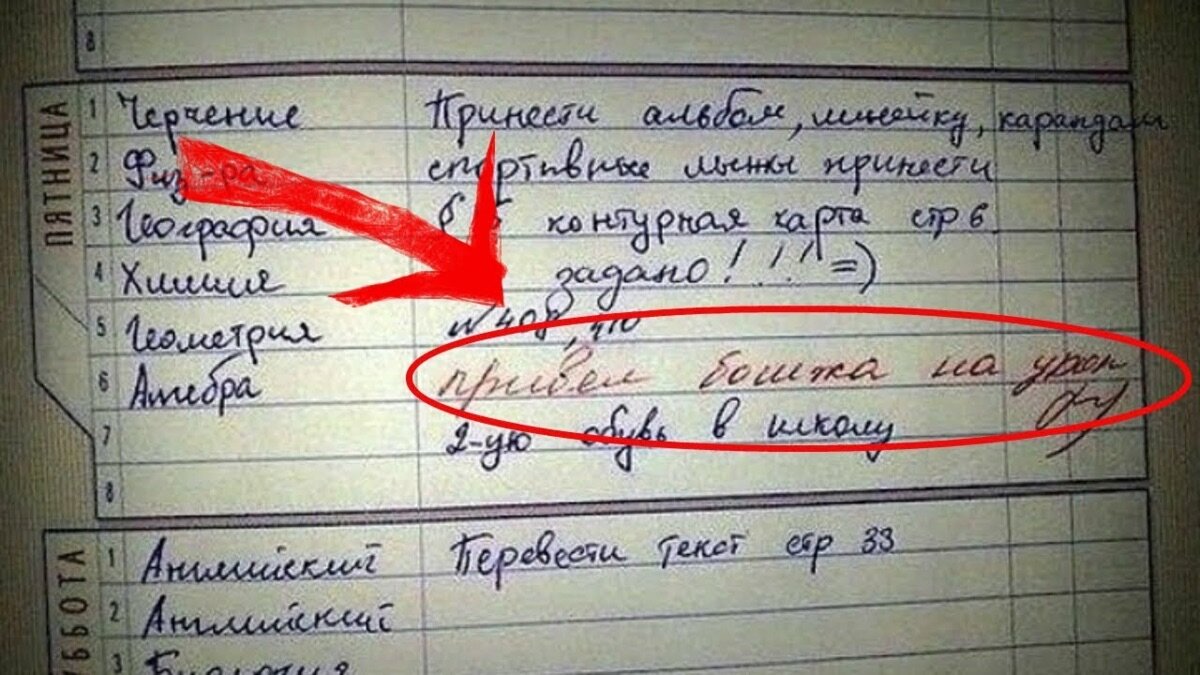 8
ПЯТНИЦА
1 Черчение Принести альбом, линейку, карандаш
2 Физ-ра спортивные лыжи принести
3 География контурная карта стр 6
4 Химия задано!!! =)
5 Геометрия № 408, 410
6 Алгебра привел бомжа на урок
7 2-ую обувь в школу
8
СУББОТА
1 Английский Перевести текст стр 33
2 Английский
3 Биология